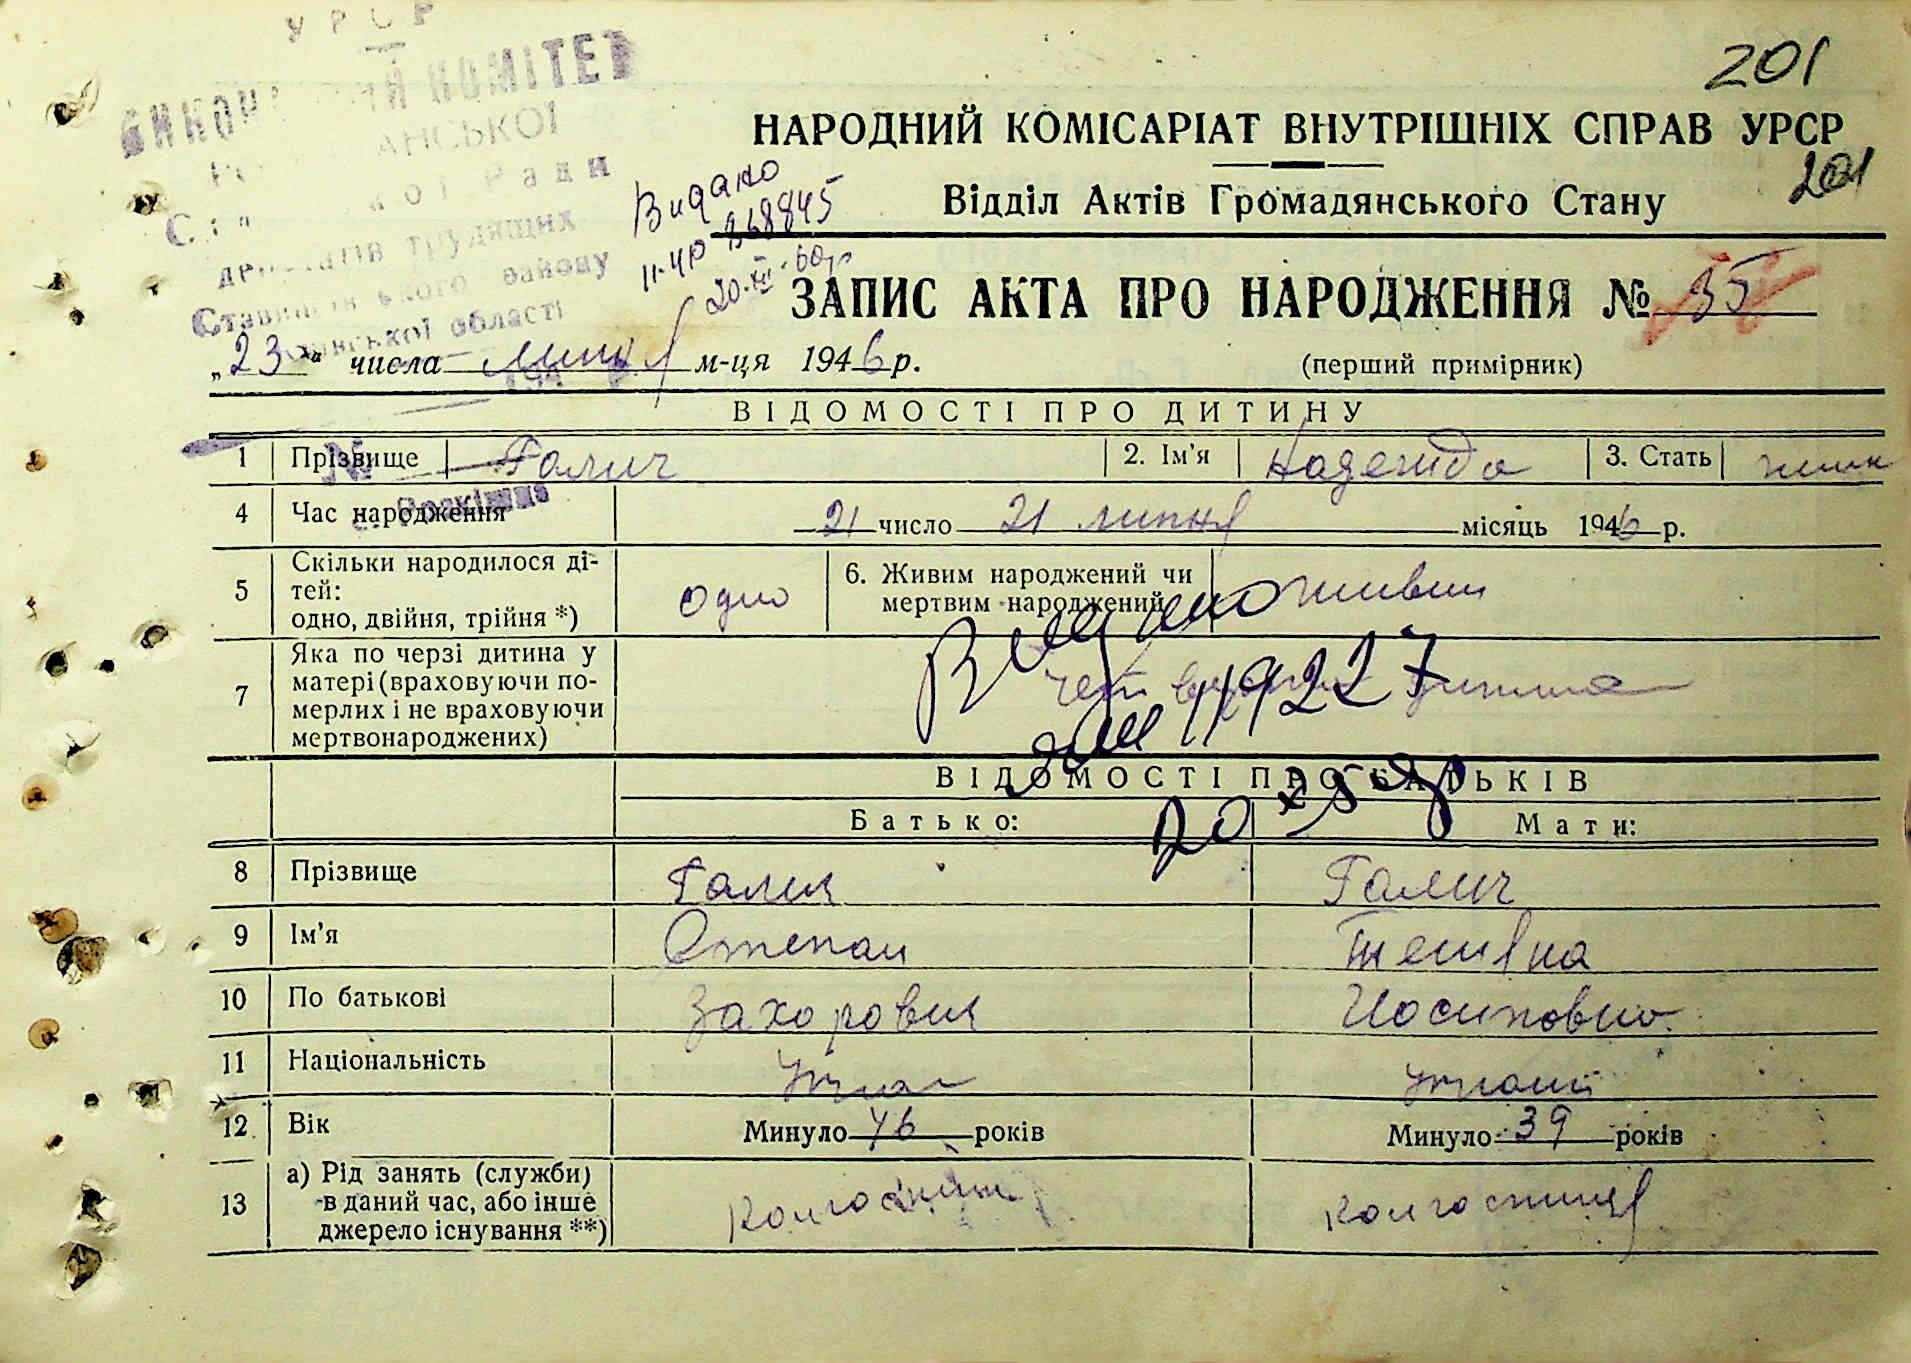 УРСР
201
КОМІТЕТ
НАРОДНИЙ КОМІСАРІАТ ВНУТРІШНІХ СПРАВ УРСР
201
Відділ Актів Громадянського Стану
Ради
трудящих
району
області
Видано
11-ЧР 368845
20.XII.60р
ЗАПИС АКТА ПРО НАРОДЖЕННЯ № 35
„23“ числа липня м-ця 1946 р. (перший примірник)
ВІДОМОСТІ ПРО ДИТИНУ
1 Прізвище Галич 2. Ім'я Надежда 3. Стать жин
№
4 Час народження 21 число 21 липня місяць 1946 р.
5 Скільки народилося ді-
тей:
одно, двійня, трійня *)
одно
6. Живим народжений чи
мертвим народжений
живим
7 Яка по черзі дитина у
матері (враховуючи по-
мерлих і не враховуючи
мертвонароджених)
дитина
Видано
119227
ВІДОМОСТІ ПРО БАТЬКІВ
Батько: Мати:
8 Прізвище Галич Галич
9 Ім'я Степан
10 По батькові Захорович Йосиповна
11 Національність Украі
12 Вік Минуло 46 років Минуло 39 років
13 а) Рід занять (служби)
в даний час, або інше
джерело існування **)
колгоспник колгоспниця